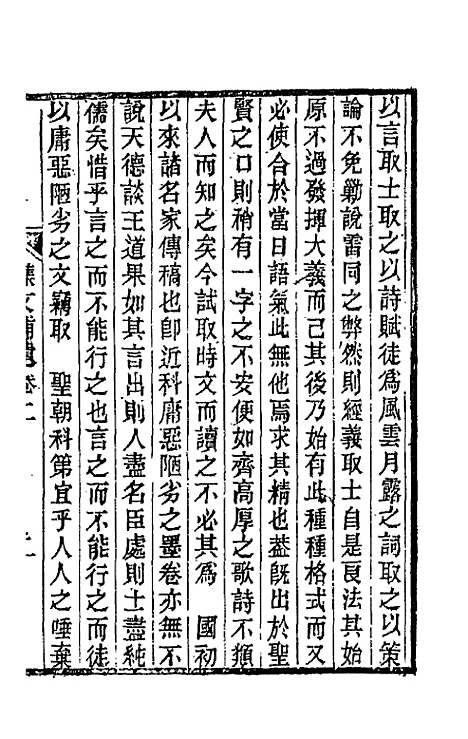 以言取士取之以詩賦徒爲風雲月露之詞取之以策
論不免勦說雷同之弊然則經義取士自是良法其始
原不過發揮大義而已其後乃始有此種種格式而又
必使合於當日語氣此無他焉求其精也葢旣出於聖
賢之口則稍有一字之不安便如齊高厚之歌詩不類
夫人而知之矣今試取時文而讀之不必其爲 國初
以來諸名家傳稿也卽近科庸惡陋劣之墨卷亦無不
說天德談王道果如其言出則人盡名臣處則士盡純
儒矣惜乎言之而不能行之也言之而不能行之而徒
以庸惡陋劣之文竊取 聖朝科第宜乎人人之唾棄
文補遺 卷二